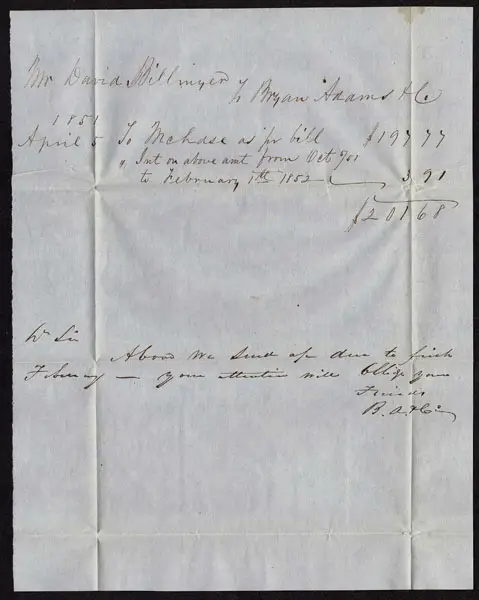 Mr David Billmyer
To Bryan Adams & Co
1851
April 5 To Mchdse as pr bill $197 77
" Int on above amt from Oct 5/51
to February 1th 1852 3 91
$201 68
Dr Sir
Above we send a/c due to first
February — your attention will Oblige your
Friends
B. A. & Co